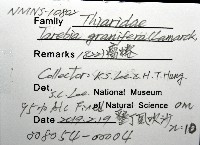 NMNS-10802
Family Thiaridae
Tarebia granifera (Lamarck,
Remarks 1822)
Collector: K.S. Lee & H.T. Hung
Det. S.C. Lee National Museum
95% Alc of Natural Science
Date 2019.2.19
008054-00004 n=10